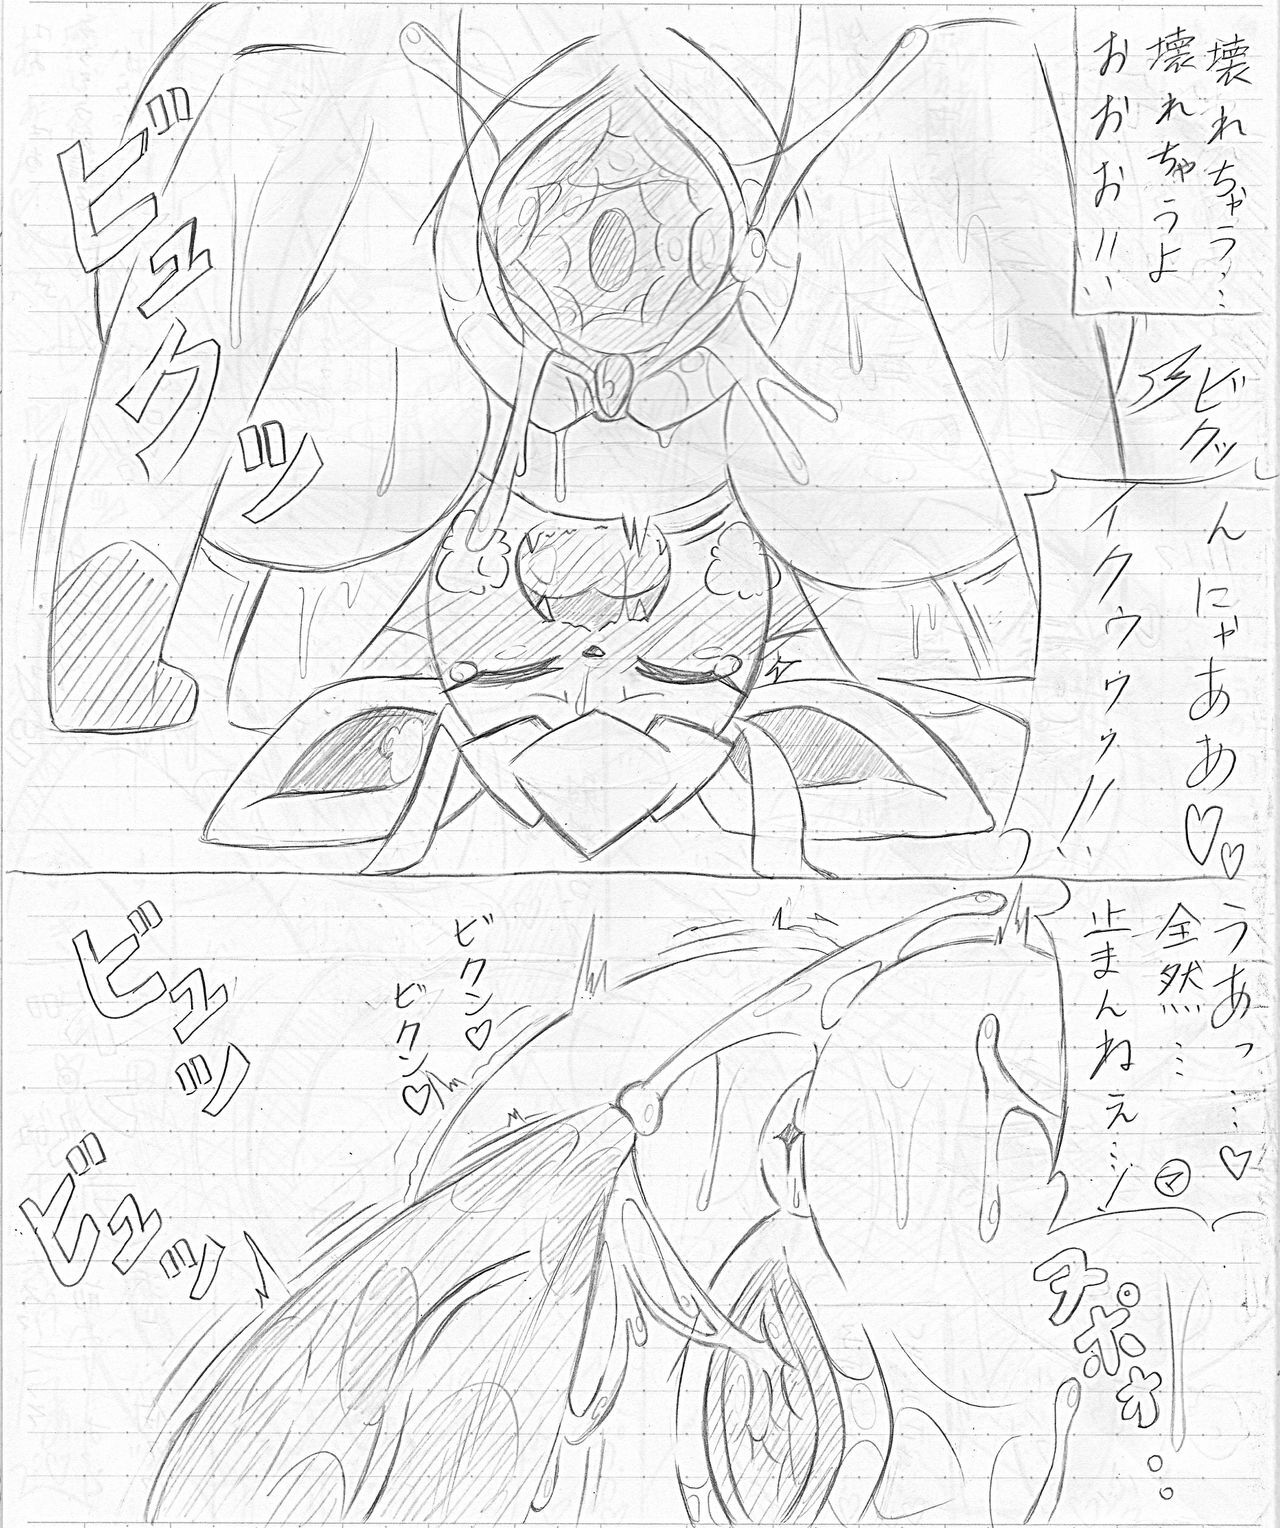 壊れちゃう…
壊れちゃうよ
おおお!!
ビクッ
ビュクッ
んにゃああ♡♡
イクゥゥゥ!!
うあっ…♡
全然…
止まんねぇ…!
マ
ビクン♡
ビクン♡
ビュッ
ビュッ
チポォ…